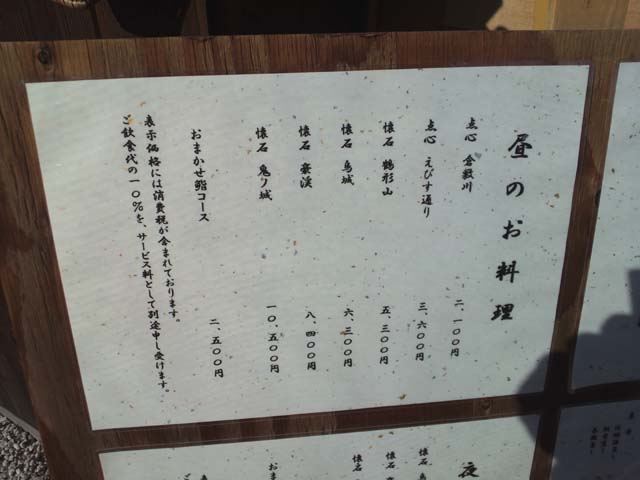 昼のお料理
点心 倉敷川 二、一〇〇円
点心 えびす通り 三、六〇〇円
懐石 鶴形山 五、三〇〇円
懐石 烏城 六、三〇〇円
懐石 豪渓 八、四〇〇円
懐石 鬼ノ城 一〇、五〇〇円
おまかせ鮨コース 二、五〇〇円
表示価格には消費税が含まれております。
ご飲食代の一〇%を、サービス料として別途申し受けます。
夜
点心
懐石
懐石
おま